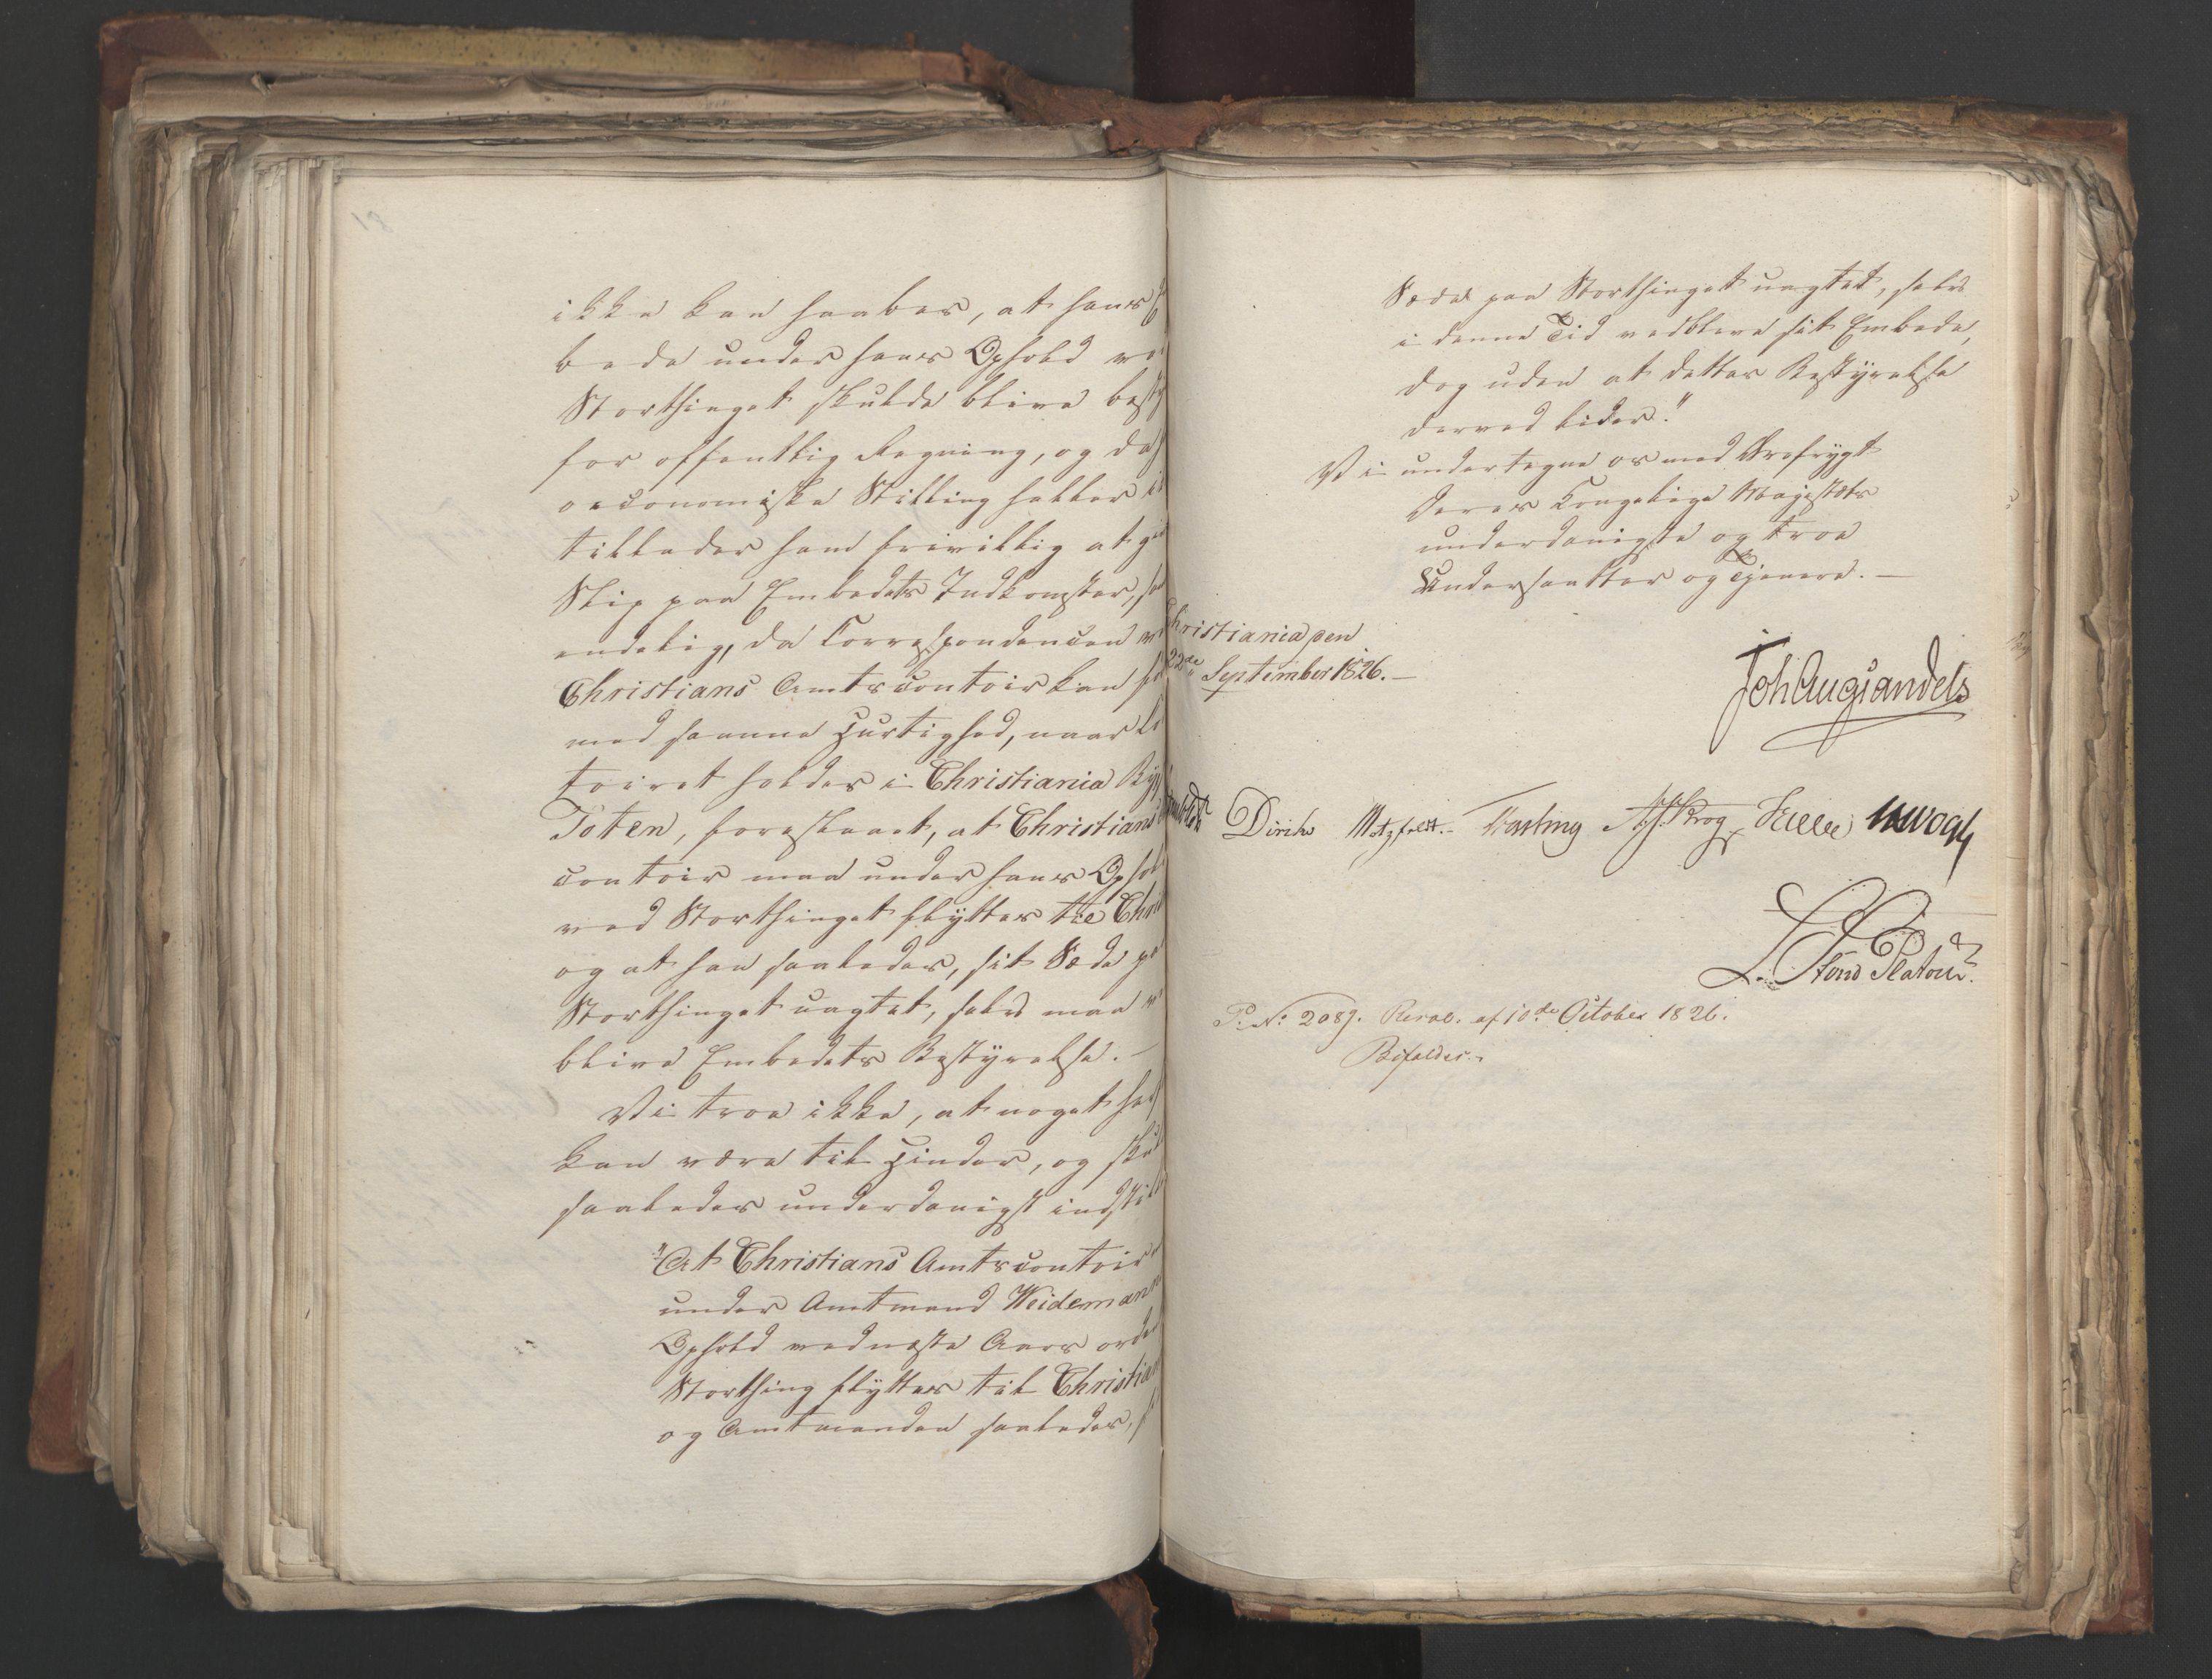 ikke kan haabes, at hans
bede under hans Ophold ve
Storthinget skulde blive besty
for offentlig Regning, og da
oeconomiske Stilling heller i
tillader ham frivillig at gi
Slip paa Embedets Indkomster,
endelig, da Correspondencen
Christians Amtscontoir kan
med samme Hurtighed, naar
toiret holdes i Christiania
Toten, foreslaaet, at Christians
contoir maa under hans Ophol
ved Storthinget flyttes til Chri
og at han saaledes, sit Sæde pa
Storthinget uagtet, selv maa
blive Embedets Bestyrelse.
Vi troe ikke, at noget
kan være til Hinder, og
saaledes underdanigst indstil
"At Christians Amtscontoir
under Amtmand Weidemann
Ophold ved næste Aars ord
Storthing flyttes til Christian
og Amtmanden saaledes,
Sæde paa Storthinget uagtet, selv
i denne Tid vedbliver sit Embede,
dog uden at dettes Bestyrelse
derved lider."
Vi undertegne os med Ærefrygt
Deres Kongelige Majestæts
underdanigste og troe
Undersaatter og Tjenere. —
Christiania den
22de September 1826. —
Joh Aug Sandels
Diriks Motzfeldt. Fasting Krog
L. Stoud Platou
P. No 2089. Resol. af 10de October 1826.
Bifaldes.